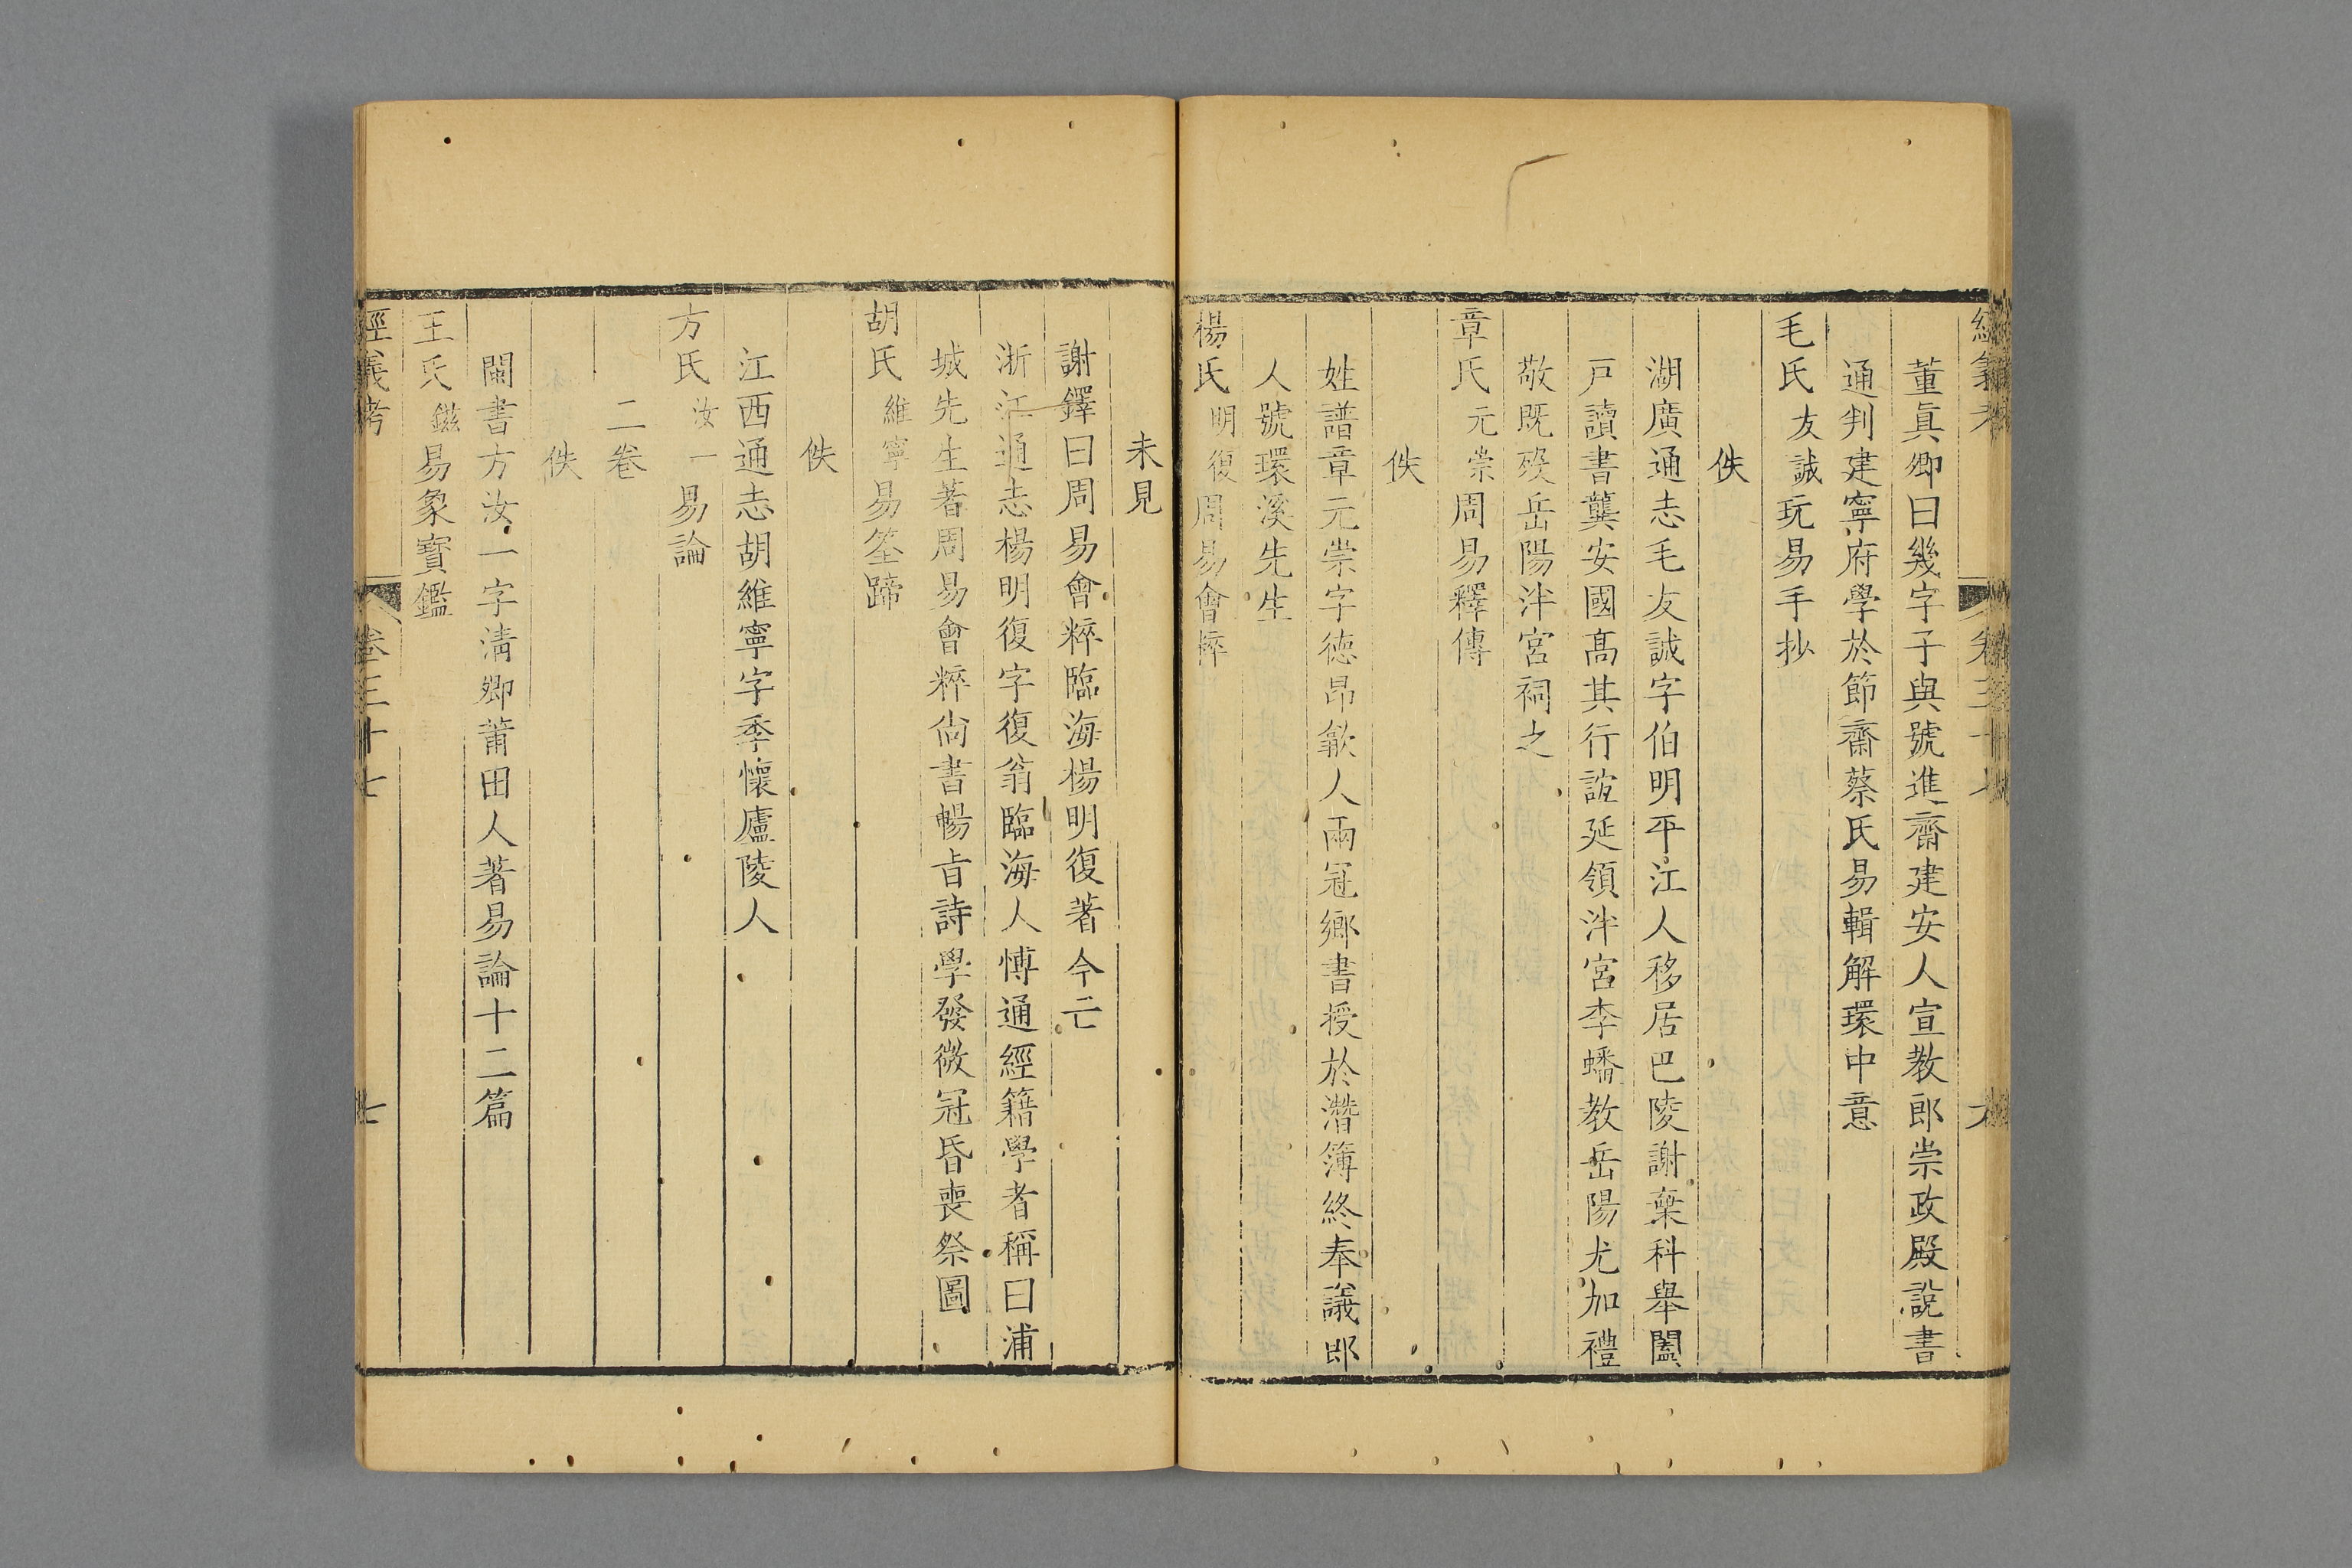 董眞卿曰幾字子與號進齋建安人宣教郎崇政殿說書
通判建寧府學於節齋蔡氏易輯解環中意
毛氏友誠玩易手抄
佚
湖廣通志毛友誠字伯明平江人移居巴陵謝棄科舉闔
戸讀書龔安國髙其行誼延領泮宮李蟠教岳陽尤加禮
敬既殁岳陽泮宮祠之
章氏元崇周易釋傳
佚
姓譜章元崇字徳昂歙人兩冠鄉書授於潛簿終奉議郎
人號環溪先生
楊氏明復周易會粹
未見
謝鐸曰周易會粹臨海楊明復著今亡
浙江通志楊明復字復翁臨海人愽通經籍學者稱曰浦
城先生著周易會粹尚書暢旨詩學發微冠昏喪祭圖
胡氏維寧易筌蹄
佚
江西通志胡維寧字季懷廬陵人
方氏汝一易論
二卷
佚
閩書方汝一字淸卿莆田人著易論十二篇
王氏鎡易象寳鑑
經義考 卷三十七 七